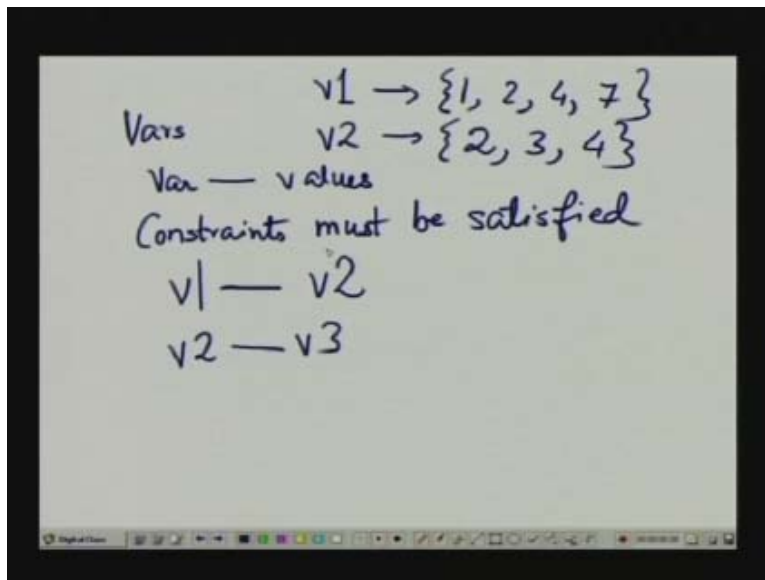 v1 → {1, 2, 4, 7}
Vars v2 → {2, 3, 4}
Var — values
Constraints must be satisfied
v1 — v2
v2 — v3
Digital Class